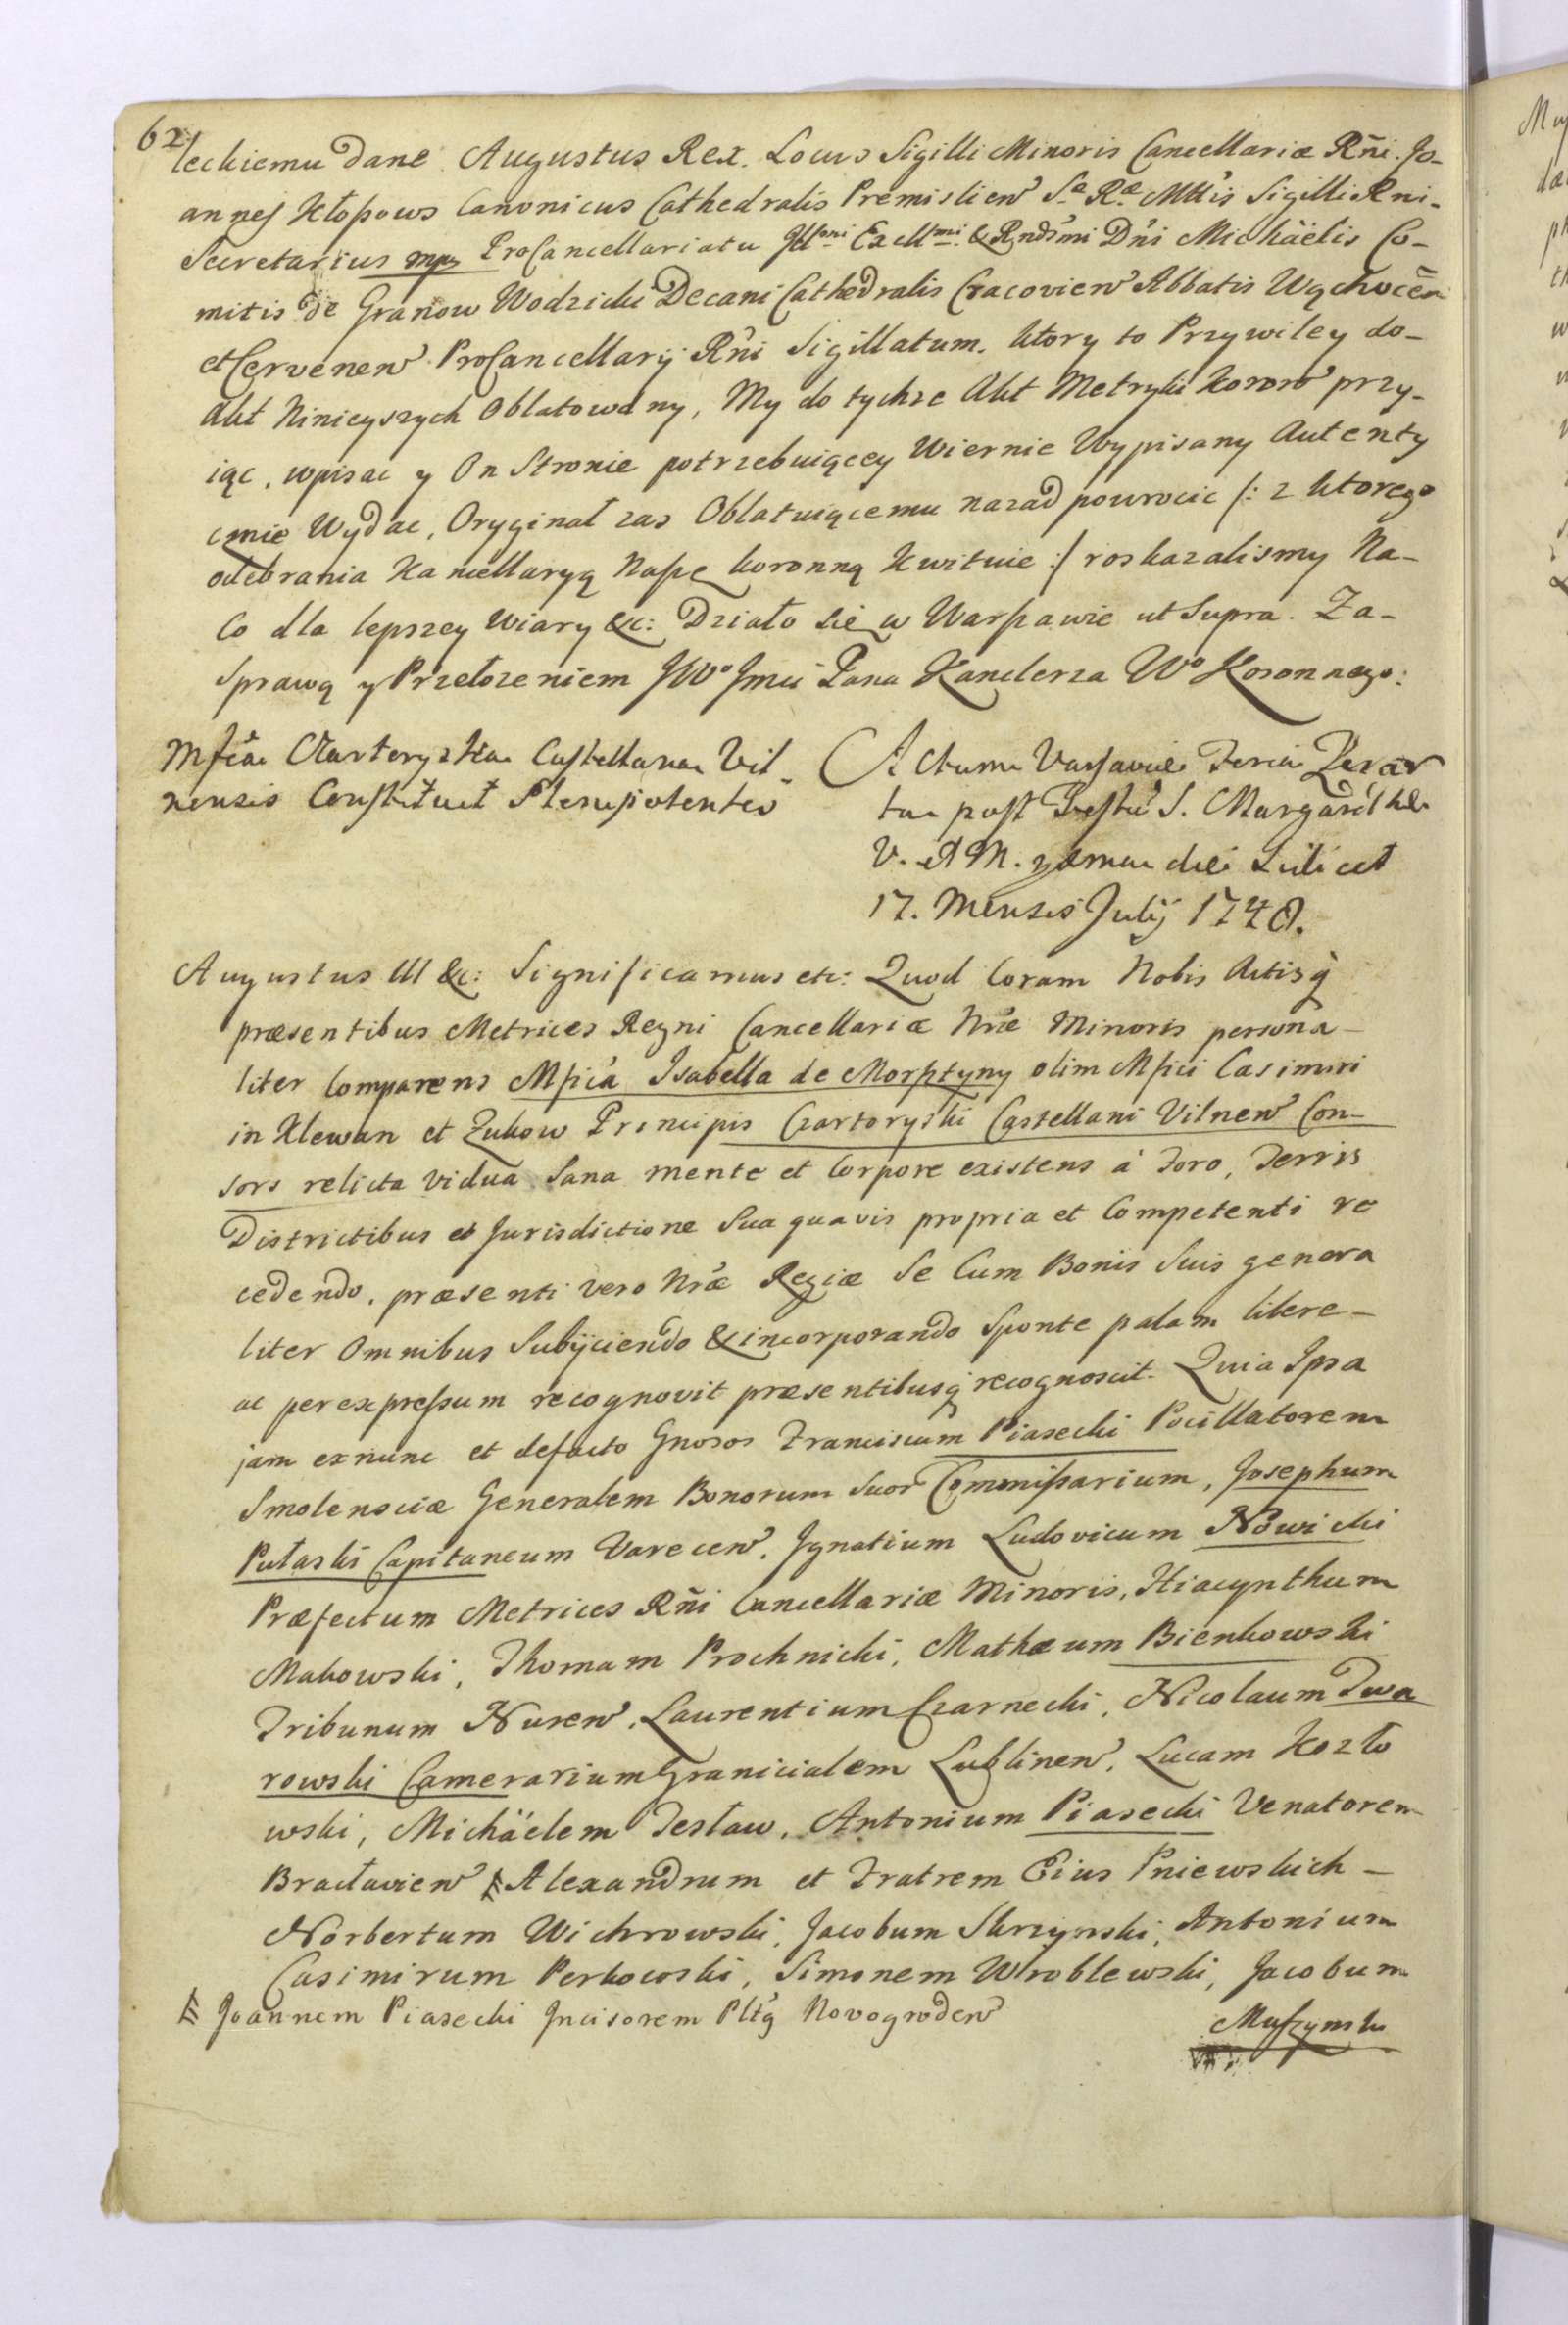 62
leckiemu dane Augustus Rex. Locus Sigilli Minoris Cancellariæ Rñi. Jo-
annes Kłossows Canonicus Cathedralis Premislien Sæ Ræ Mttis Sigilli Rni.
Secretarius mp ProCancellariatu Illmi Excllmi & Rndsmi Dni Michäelis Co-
mitis de Granow Wodzicki Decani Cathedralis Cracovien Abbatis Wąchocēn
et Cervenen ProCancellarij Rñi Sigillatum. ktory to Przywiley do-
Akt Ninieyszych Oblatowany, My do tychze Akt Metryki Koron przy-
iąc, wpisac y On Stronie potrzebuiącey Wiernie Wypisany Autenty
cznie Wydac, Oryginał zas Oblatuiącemu nazad powrocic /: z ktorego
odebrania Kancellaryą Naszę koronną kwituie :/ roskazalismy Na-
Co dla lepszey Wiary &c: Działo się w Warszawie ut Supra. Za-
Sprawą y Przełozeniem JWo Jmci Pana Kanclerza Wo Koronnego:
Mfica Czartoryska Castellana Vil-
nensis Constituit Plenipotentes
Actum Varsaviæ Feria Quar
ta post Festu S. Margarithæ
V. et M. ... die Scilicet
17. Mensis Julij 1748.
Augustus III &c: Significamus etc: Quod Coram Nobis Actisq
præsentibus Metrices Regni Cancellariæ Nræ Minoris persona-
liter Comparens Mfica Isabella de Morsztyny olim Mfici Casimiri
in Klewan et Zukow Principis Czartoryski Castellani Vilnen Con-
sors relicta vidua Sana mente et Corpore existens à Foro, Terris
Districtibus et Jurisdictione Sua quavis propria et Competenti re
cedendo, præsenti vero Nræ Regiæ Se Cum Bonis Suis genera
liter Omnibus Subijciendo & incorporando Sponte palam libere-
ac per expressum recognovit præsentibusq recognoscit. Quia Ipsa
jam ex nunc et defacto Gnosos Franciscum Piasecki Pocillatorem
Smolensciæ Generalem Bonorum Suor Commissarium, Josephum
Pułaski Capitaneum Varecen, Ignatium Ludovicum Nowicki
Præfectum Metrices Rñi Cancellariæ Minoris, Hiacynthum
Makowski, Thomam Prochnicki, Mathæum Bienkowski
Tribunum Nuren, Laurentium Czarnecki, Nicolaum Twa
rowski Camerarium Granicialem Lublinen, Lucam Kozło
wski, Michäelem Tesław, Antonium Piasecki Venatorem
Bracłavien # Alexandrum et Fratrem Eius Pniewskich-
Norbertum Wichrowski, Jacobum Skrzynski, Antonium
Casimirum Perkowski, Simonem Wroblewski, Jacobum
# Joannem Piasecki Incisorem Pltq Novogroden
Muszynski